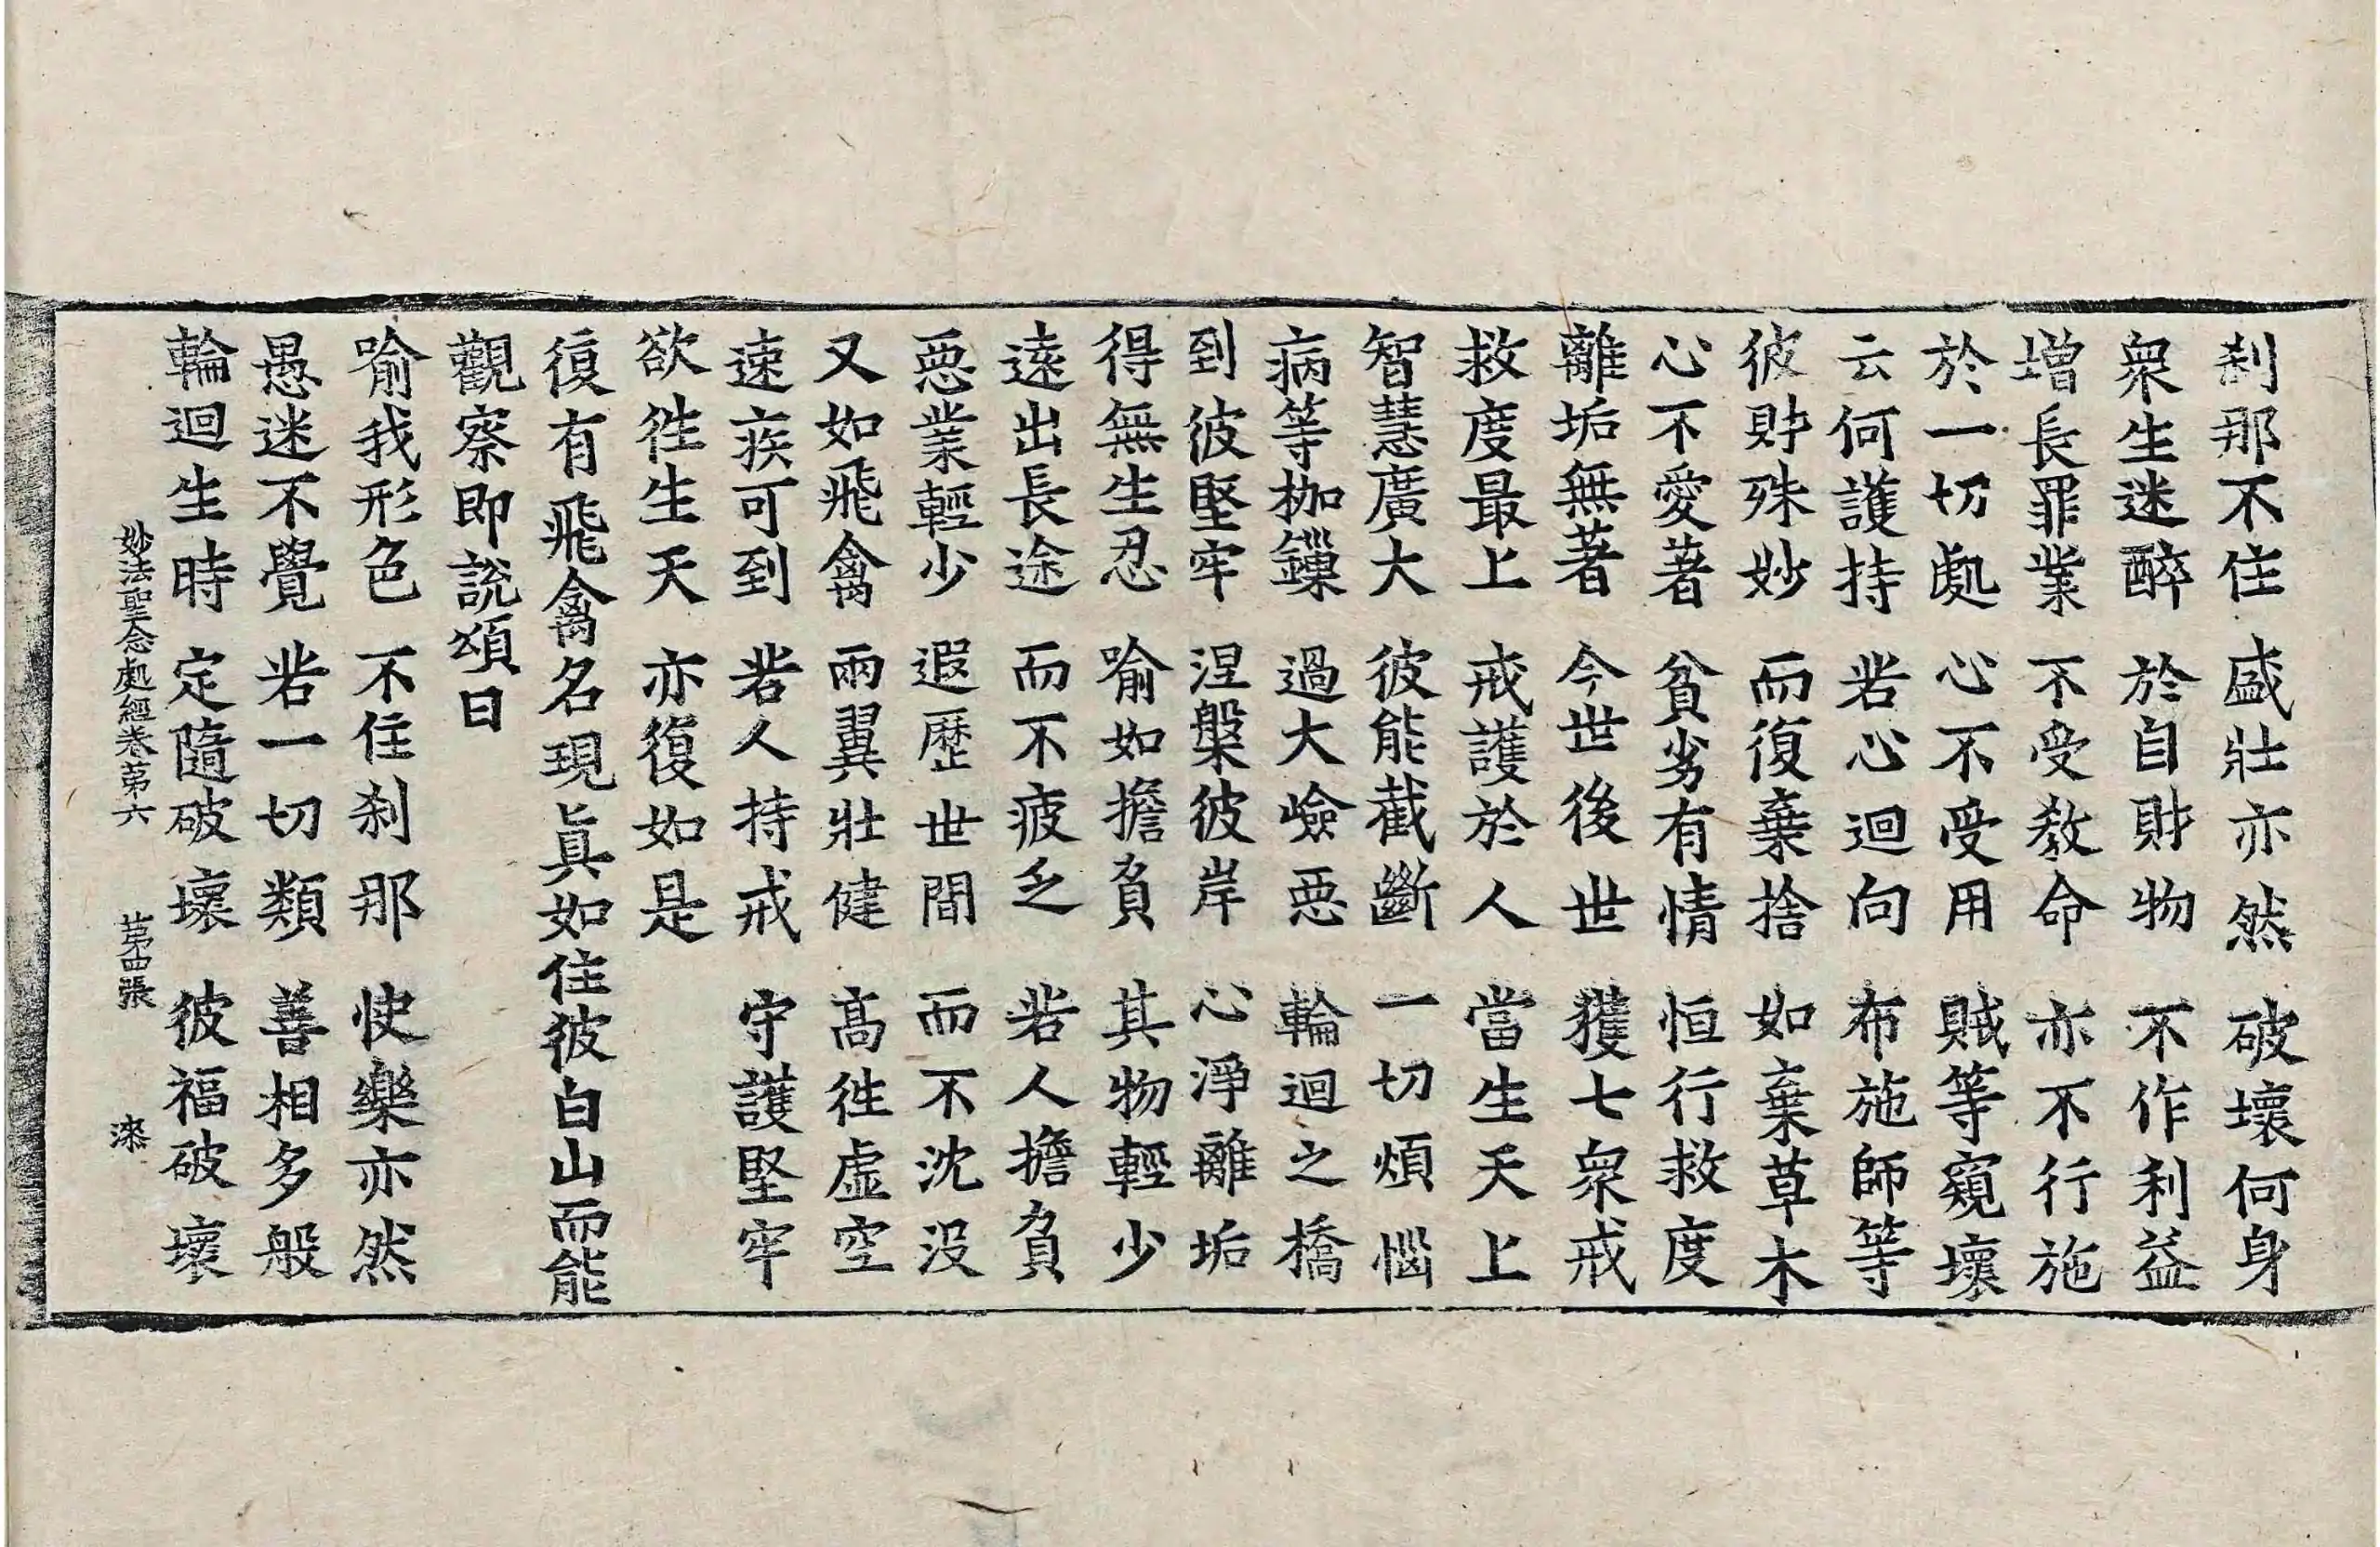 刹那不住　盛壯亦然　破壞何身
衆生迷醉　於自財物　不作利益
增長罪業　不受敎命　亦不行施
於一切處　心不受用　賊等窺壞
云何護持　若心迴向　布施師等
彼財殊妙　而復棄捨　如棄草木
心不愛著　貧劣有情　恒行救度
離垢無著　今世後世　獲七衆戒
救度最上　戒護於人　當生天上
智慧廣大　彼能截斷　一切煩惱
病等枷鏁　過大嶮惡　輪迴之橋
到彼堅牢　涅槃彼岸　心淨離垢
得無生忍　喻如擔負　其物輕少
遠出長途　而不疲乏　若人擔負
惡業輕少　遐歷世間　而不沈沒
又如飛禽　兩翼壯健　高往虛空
速疾可到　若人持戒　守護堅牢
欲往生天　亦復如是
復有飛禽名現眞如住彼白山而能
觀察即說頌曰
喻我形色　不住刹那　快樂亦然
愚迷不覺　若一切類　善相多般
輪迴生時　定隨破壞　彼福破壞
妙法聖念處經卷第六　第四張　漆